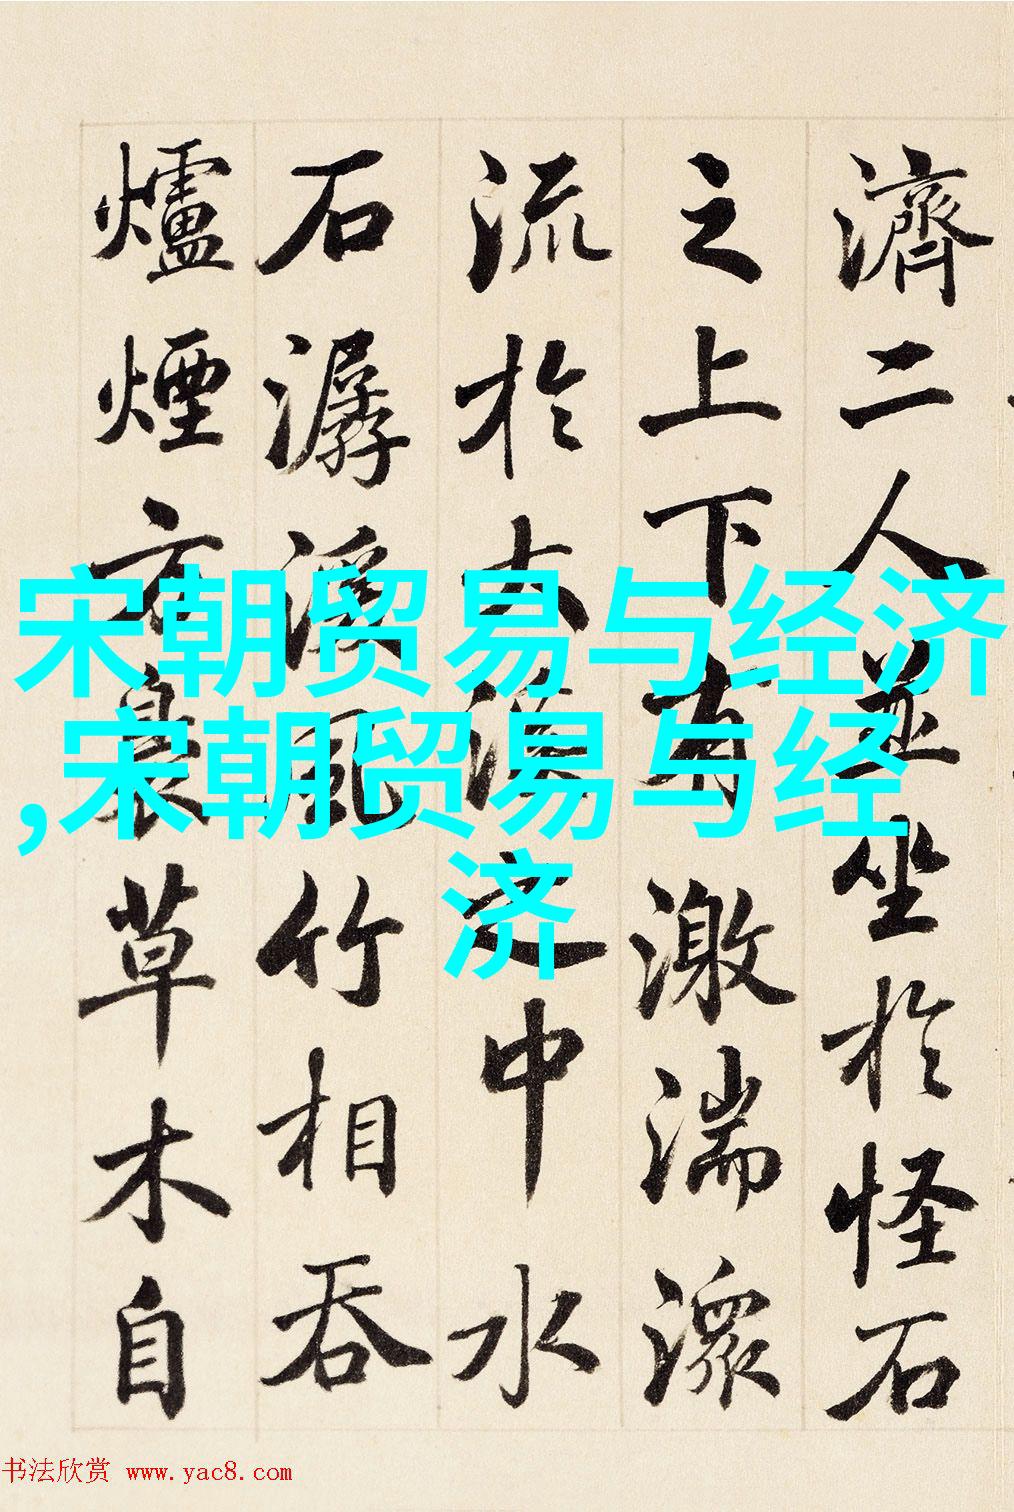 濟二人並坐於怪石
之上下有激湍潀
流於大溪之中水
石潺湲風竹相吞
爐煙方裊草木自
宋朝贸易与经济
,宋朝贸易与经
济
书法欣赏 www.yac8.com